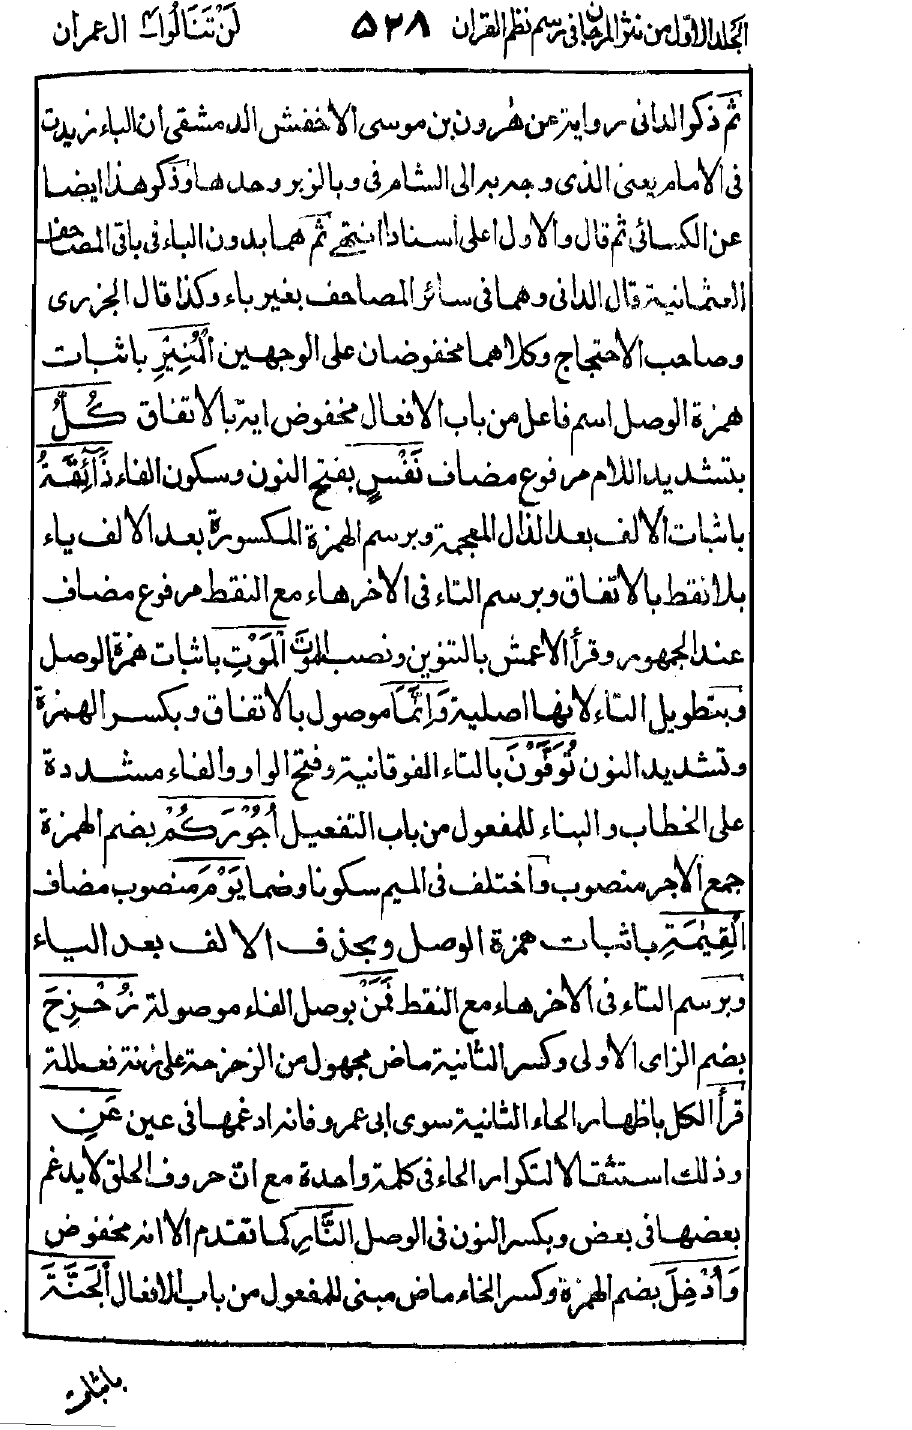 الجلد الاول من نثر المرجان فى رسم نظم القران ۵۲۸ لَنْ تَنَالُوا۴ ال عمران
ثم ذكر الدانى رواية عن هٰرون بن موسى الاخفش الدمشقى ان الباء زيدت
فى الامام يعنى الذى وجه به الى الشام فى وبالزبر وحدها وذكر هذا ايضا
عن الكسائى ثم قال والاول اعلى اسنادا انتهى ثم هما بدون الباء فى باقى المصاحف
العثمانية قال الدانى وهما فى سائر المصاحف بغير باء وكذا قال الجزرى
وصاحب الاحتجاج وكلاهما مخفوضان على الوجهين اَلْمُنِيْرِ باثبات
همزة الوصل اسم فاعل من باب الافعال مخفوض اية بالاتفاق كُلُّ
بتشديد اللام مرفوع مضاف نَفْسٍ بفتح النون وسكون الفاء ذَآئِقَةُ
باثبات الالف بعد الذال المعجمة وبرسم الهمزة المكسورة بعد الالف ياء
بلا نقط بالاتفاق وبرسم التاء فى الاخر هاء مع النقط مرفوع مضاف
عند الجمهور وقرأ الاعمش بالتنوين ونصب الموتَ اَلْمَوْتِ باثبات همزة الوصل
وبتطويل التاء لانها اصلية وَاِنَّمَا موصول بالاتفاق وبكسر الهمزة
وتشديد النون تُوَفَّوْنَ بالتاء الفوقانية وفتح الواو والفاء مشددة
على الخطاب والبناء للمفعول من باب التفعيل اُجُوْرَكُمْ بضم الهمزة
جمع الاجر منصوب واختلف فى الميم سكونا وضما يَوْمَ منصوب مضاف
اَلْقِيٰمَةِ باثبات همزة الوصل وبحذف الالف بعد الياء
وبرسم التاء فى الاخر هاء مع النقط فَمَنْ بوصل الفاء موصولة زُحْزِحَ
بضم الزاى الاولى وكسر الثانية ماض مجهول من الزحزحة على زنة فعللة
قرأ الكل باظهار الحاء الثانية سوى ابى عمرو فانه ادغمها فى عين عَنِ
وذلك استثقالا لتكرار الحاء فى كلمة واحدة مع ان حروف الحلق لا يدغم
بعضها فى بعض وبكسر النون فى الوصل النَّارِ كما تقدم الا انه مخفوض
وَاُدْخِلَ بضم الهمزة وكسر الخاء ماض مبنى للمفعول من باب الافعال اَلْجَنَّةَ
باثبات